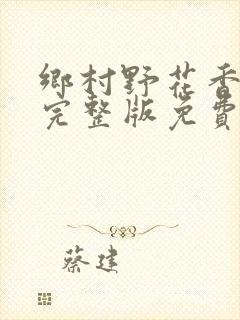 鄉村野花香
完整版免費
蔡建